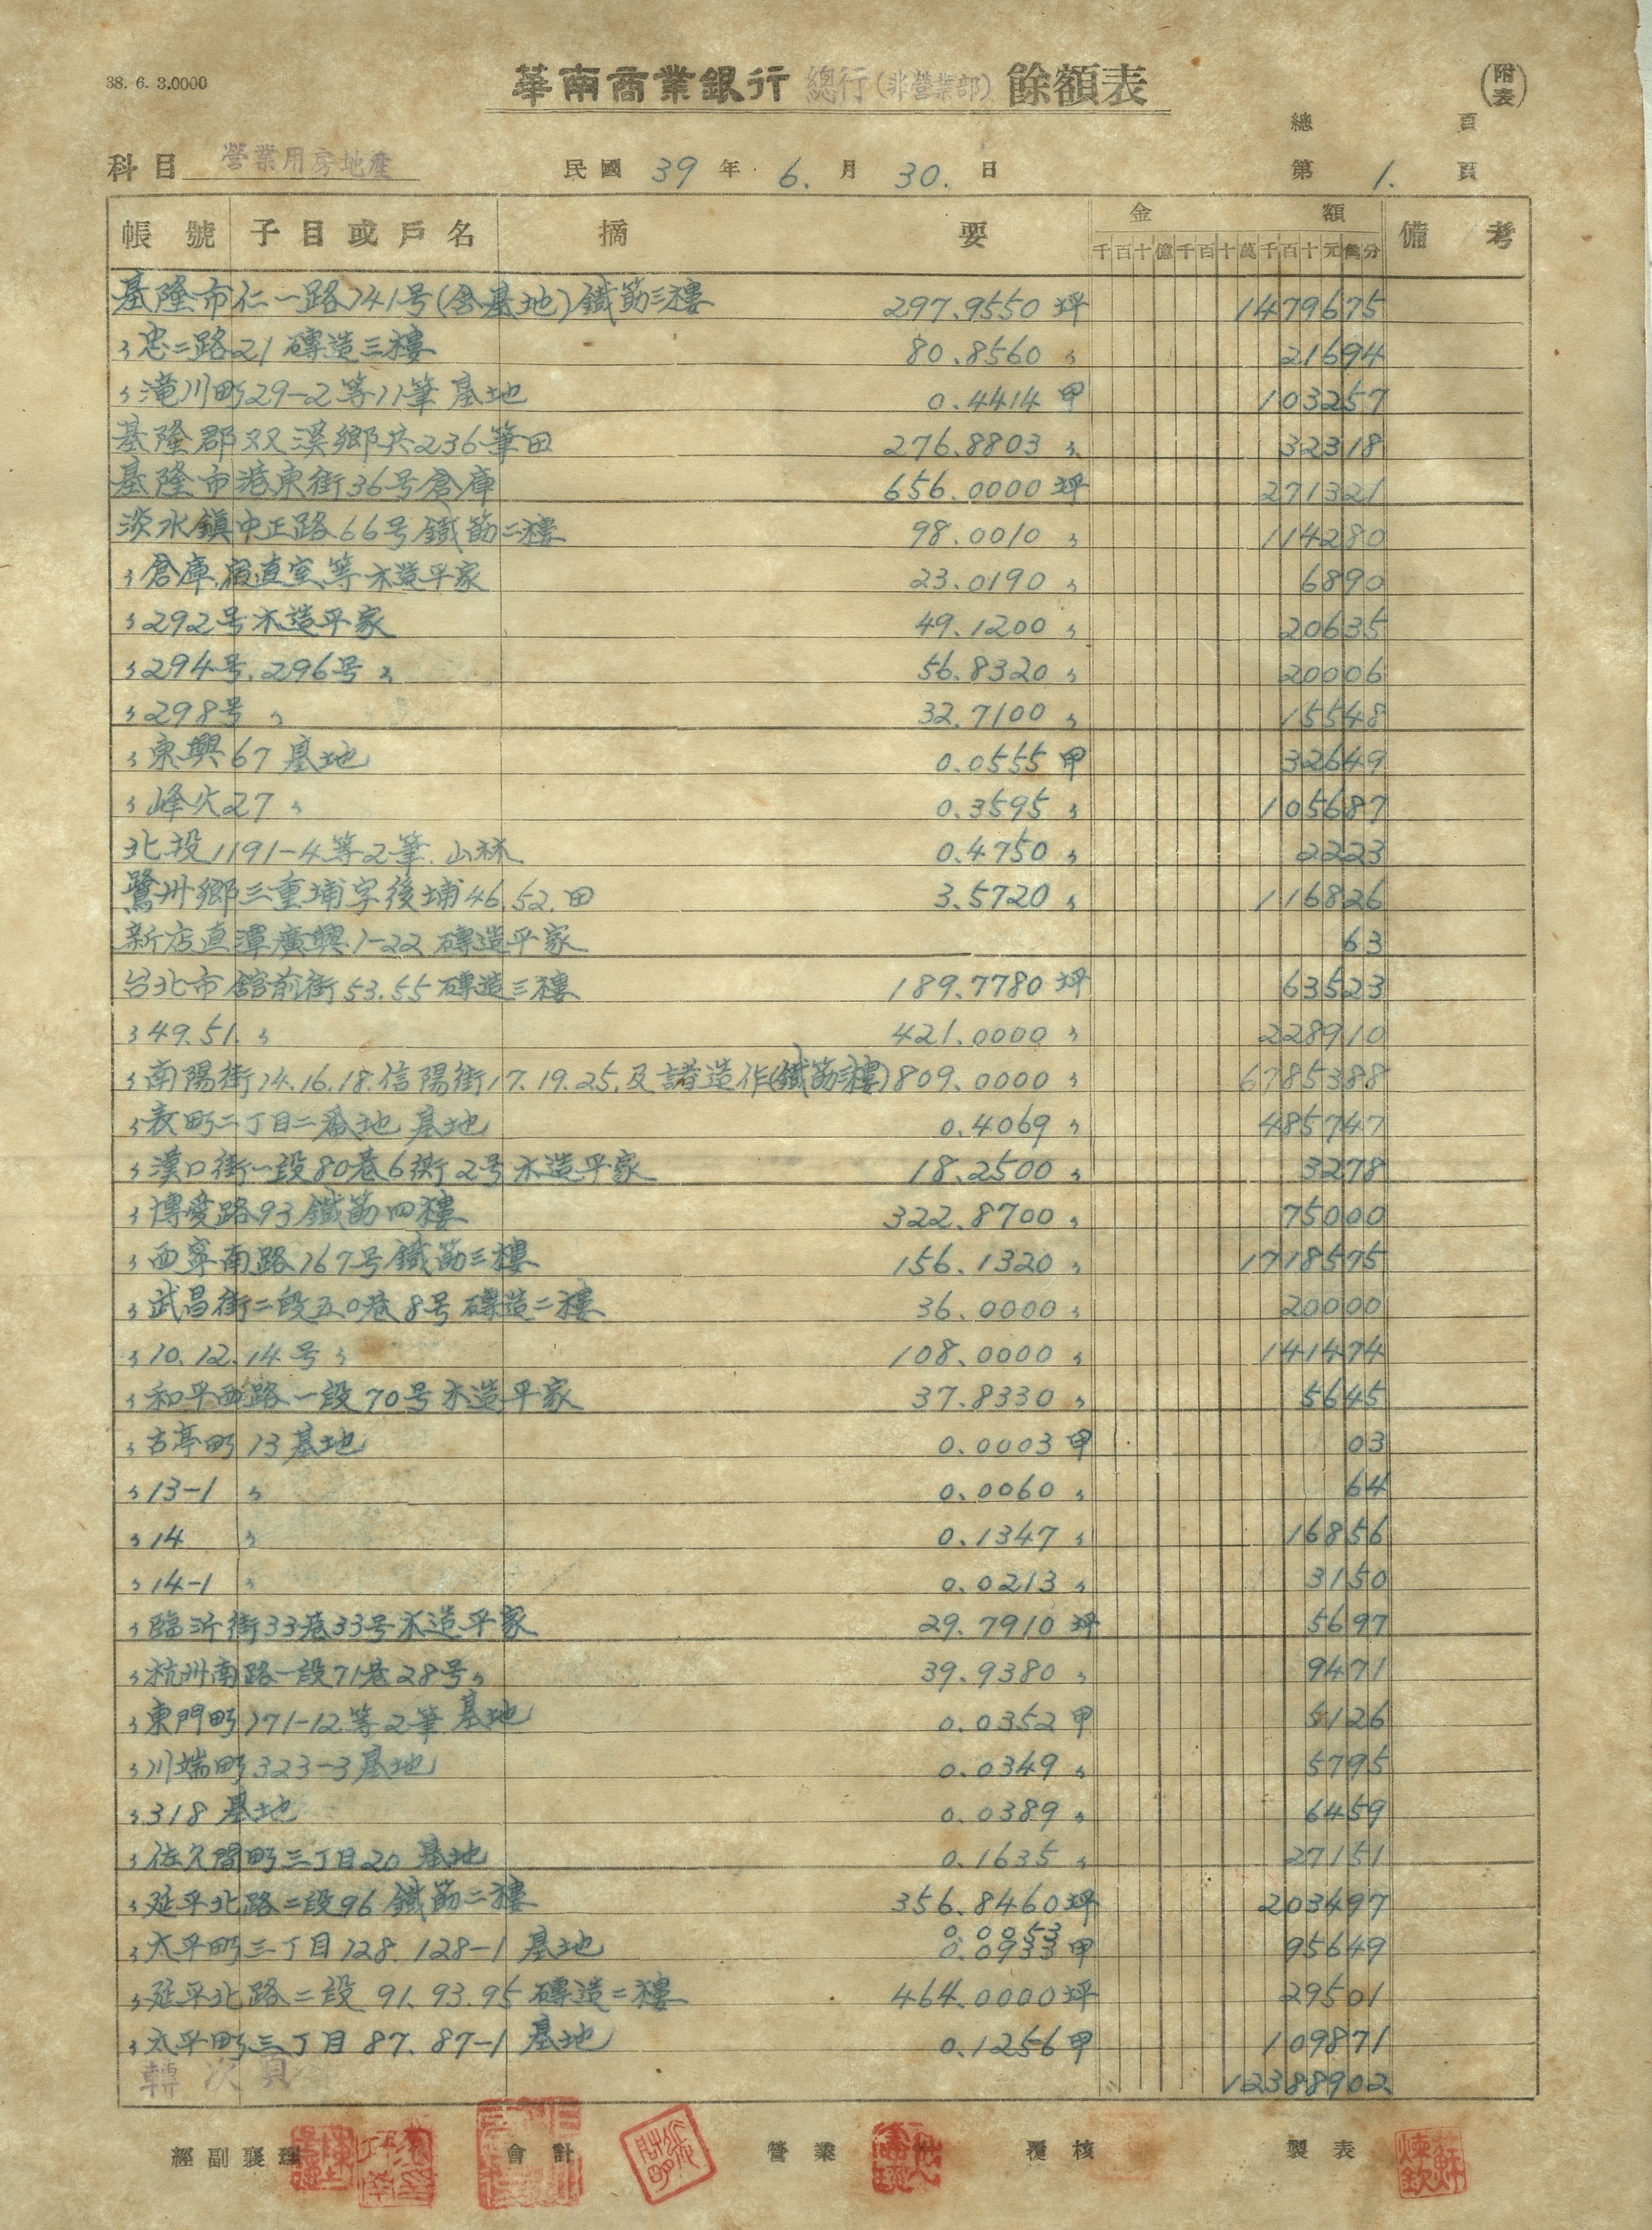 38. 6. 3.0000
華南商業銀行 總行(非營業部) 餘額表
(附表)
總 頁
科目 營業用房地產 民國 39 年 6. 月 30. 日 第 1. 頁
帳號 子目或戶名 摘要 金額 備考
千百十億千百十萬千百十元角分
基隆市仁一路141号(含基地)鐵筋三樓 297.9550 坪 1479675
〃忠二路21 磚造三樓 80.8560 〃 21694
〃滝川町29-2等11筆 基地 0.4414 甲 103257
基隆郡双溪鄉共236筆田 276.8803 〃 32318
基隆市港東街36号倉庫 656.0000 坪 271321
淡水鎮中正路66号鐵筋二樓 98.0010 〃 114280
〃倉庫.宿直室等木造平家 23.0190 〃 6890
〃292号木造平家 49.1200 〃 20635
〃294号.296号〃 56.8320 〃 20006
〃298号 〃 32.7100 〃 15548
〃東興67 基地 0.0555 甲 32649
〃峰火27 〃 0.3595 〃 105687
北投1191-4等2筆.山林 0.4750 〃 2223
鷺州鄉三重埔字後埔46.52.田 3.5720 〃 116826
新店直潭廣興1-22 磚造平家 63
台北市館前街53.55磚造三樓 189.7780 坪 63523
〃49.51.〃 421.0000 〃 228910
〃南陽街14.16.18.信陽街17.19.25.及諸造作(鐵筋三樓) 809.0000 〃 6785388
〃表町二丁目二番地 基地 0.4069 〃 485747
〃漢口街一段80巷6衖2号木造平家 18.2500 〃 3278
〃博愛路93鐵筋四樓 322.8700 〃 75000
〃西寧南路167号鐵筋三樓 156.1320 〃 1718575
〃武昌街二段五0巷8号磚造二樓 36.0000 〃 20000
〃10.12.14.号〃 108.0000 〃 141474
〃和平西路一段70号木造平家 37.8330 〃 5645
〃古亭町13基地 0.0003 甲 03
〃13-1 〃 0.0060 〃 64
〃14 〃 0.1347 〃 16856
〃14-1 〃 0.0213 〃 3150
〃臨沂街33巷33号木造平家 29.7910 坪 5697
〃杭州南路一段71巷28号〃 39.9380 〃 9471
〃東門町171-12等2筆 基地 0.0352 甲 5126
〃川端町323-3基地 0.0349 〃 5795
〃318 基地 0.0389 〃 6459
〃佐久間町三丁目20 基地 0.1635 〃 27151
〃延平北路二段96 鐵筋二樓 356.8460坪 203497
0.0053
〃太平町三丁目128.128-1 基地 0.0933甲 95649
〃延平北路二段 91.93.95 磚造二樓 464.0000坪 29501
〃太平町三丁目 87.87-1 基地 0.1256甲 109871
轉次頁 12388902
經副襄理 會計 營業 覆核 製表